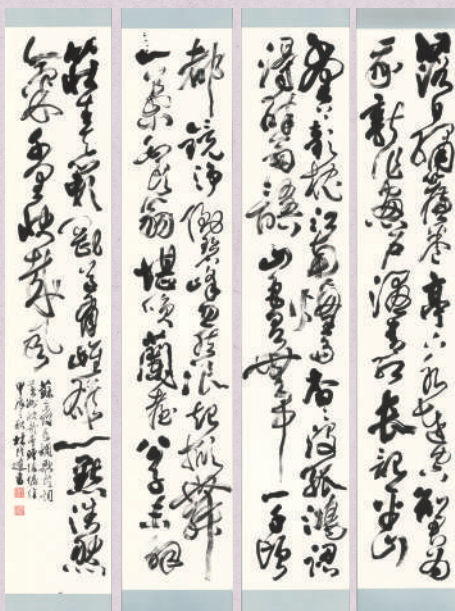 落日繡簾捲亭下水連空知君為
我新作窗戶濕青紅長記平山
堂上欹枕江南煙雨杳杳沒孤鴻認
得醉翁語山色有無中一千頃
都鏡淨倒碧峰忽然浪起掀舞
一葉白頭翁堪笑蘭臺公子未解
莊生天籟剛道有雌雄一點浩然
氣千里快哉風
蘇子瞻水調歌頭詞
黃州快哉亭贈張偓佺
甲辰之秋林隆達書